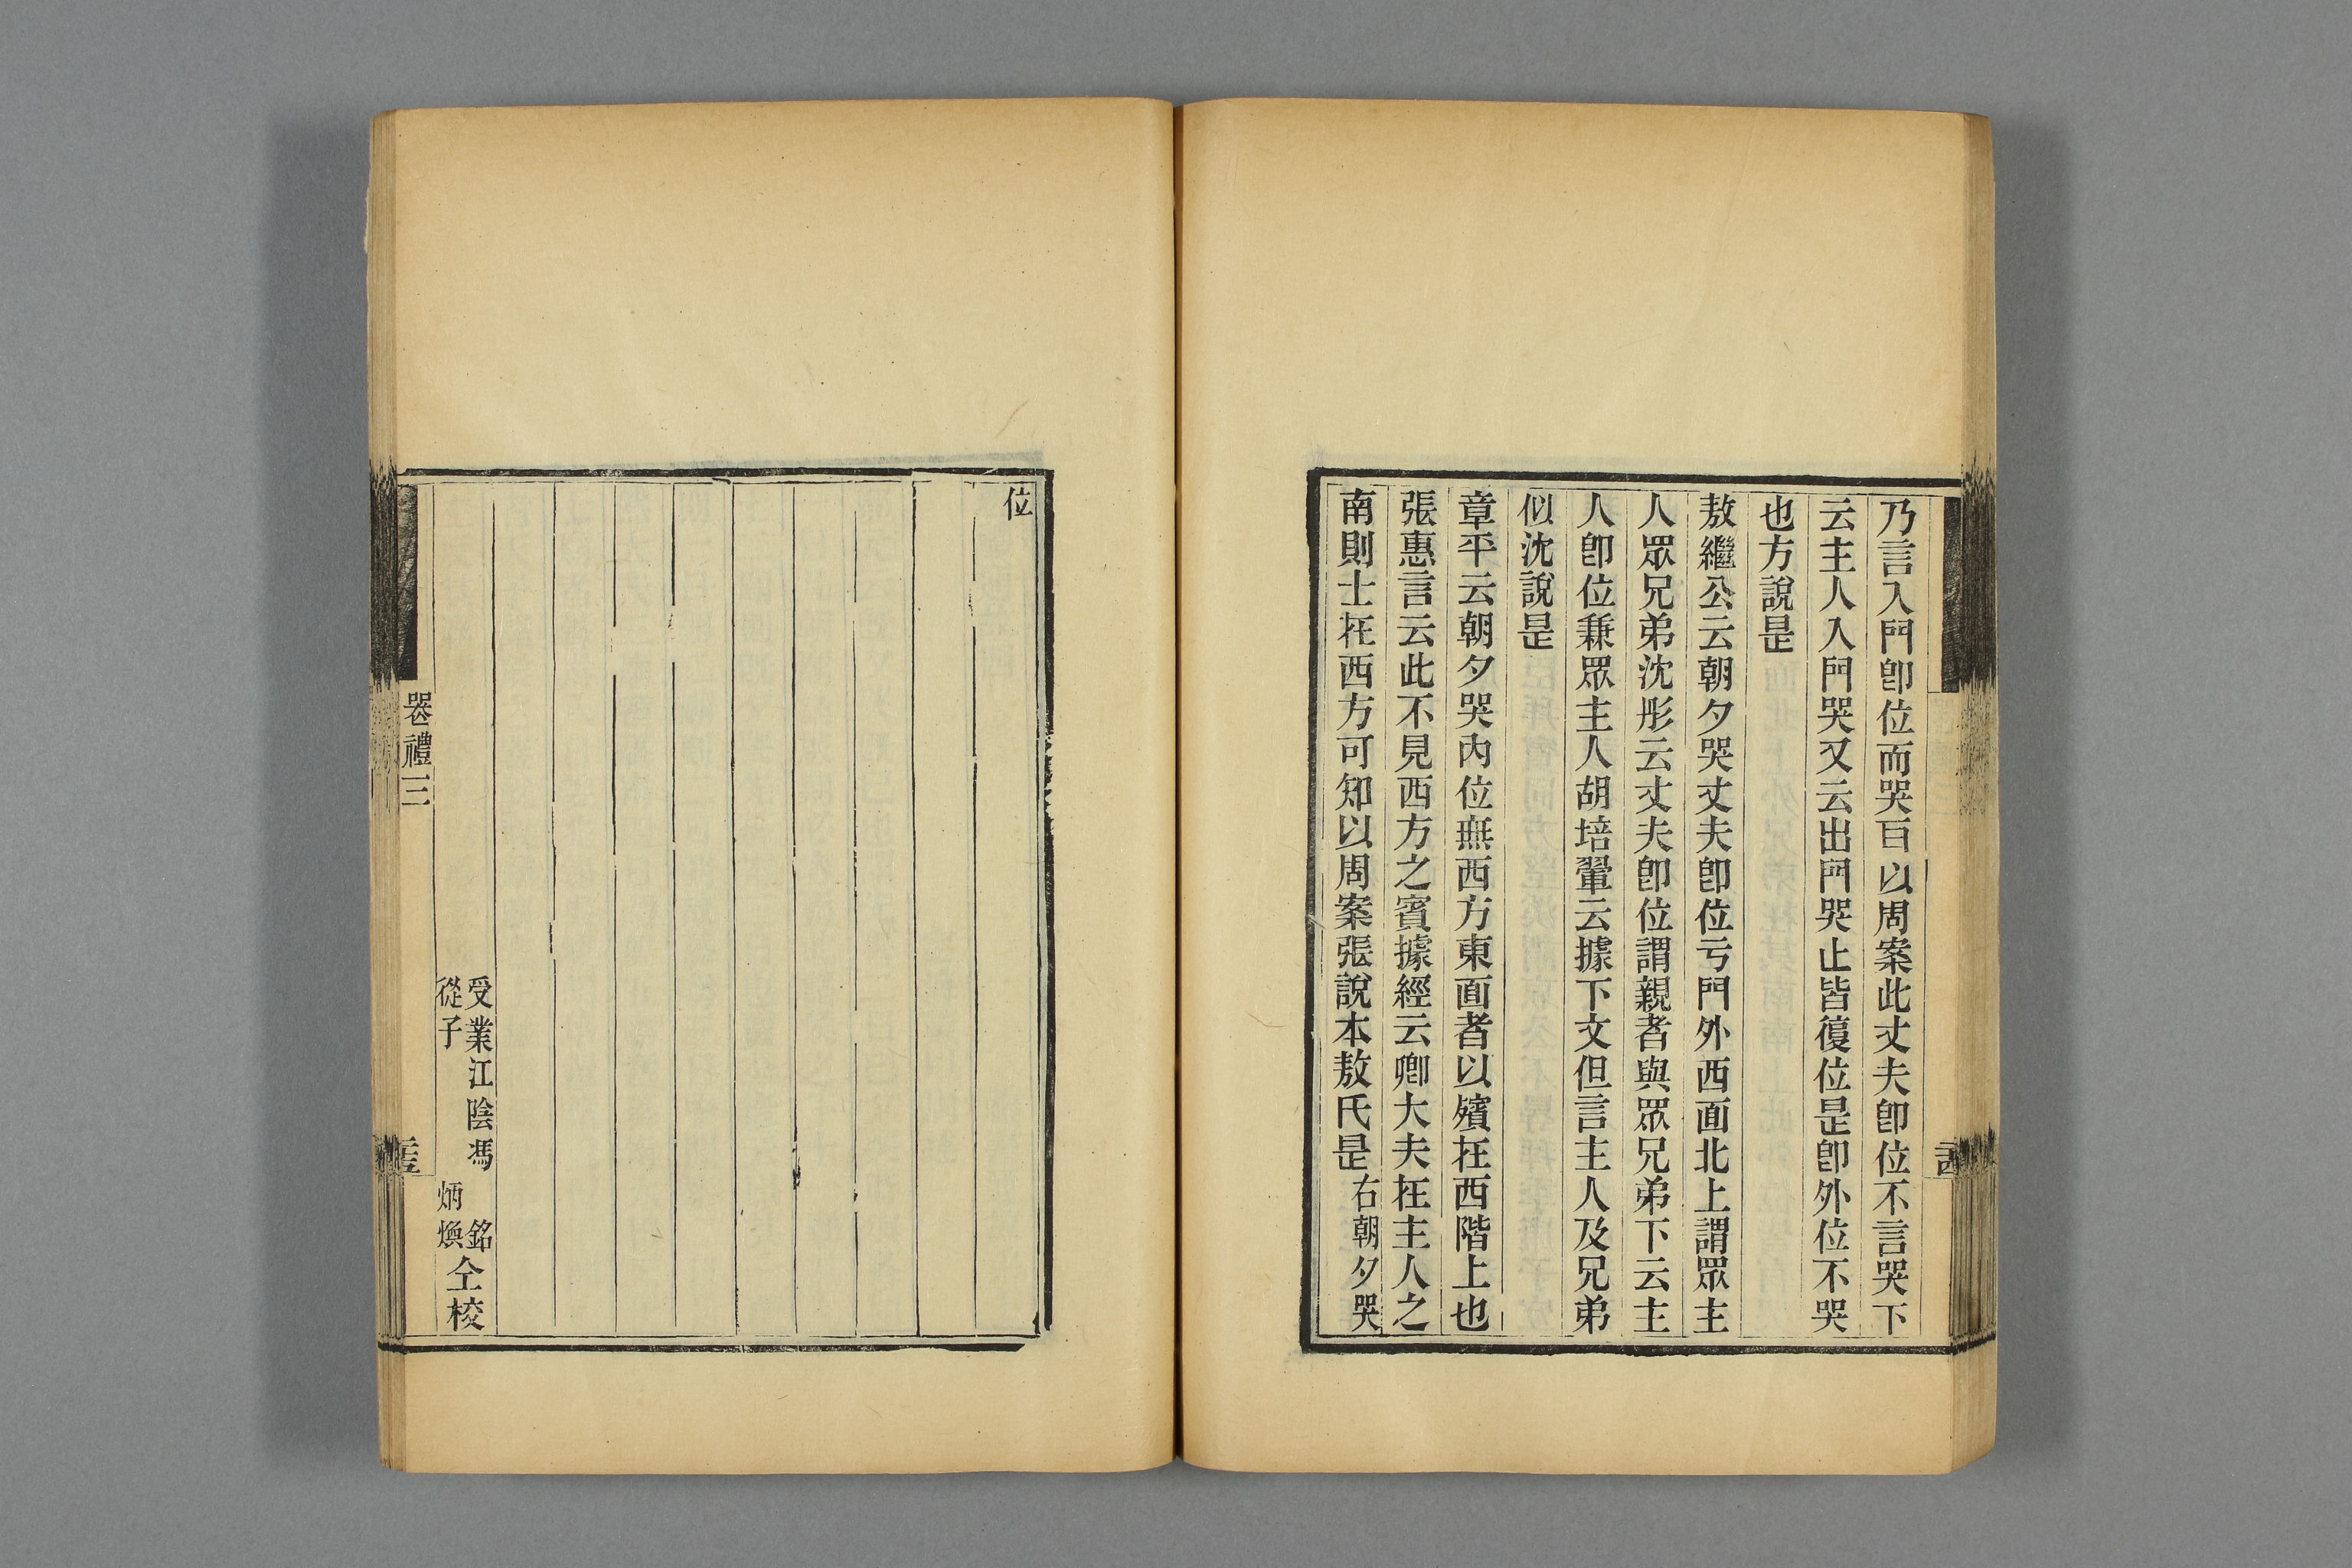 乃言入門卽位而哭㠯以周案此丈夫卽位不言哭下
云主人入門哭又云出門哭止皆復位是卽外位不哭
也方說是
敖繼公云朝夕哭丈夫卽位亏門外西面北上謂眾主
人眾兄弟沈彤云丈夫卽位謂親者與眾兄弟下云主
人卽位兼眾主人胡培翬云據下文但言主人及兄弟
似沈說是
章平云朝夕哭內位無西方東面者以殯在西階上也
張惠言云此不見西方之賓據經云卿大夫在主人之
南則士在西方可知以周案張說本敖氏是右朝夕哭
位
受業江陰馮 銘
從子 炳煥
仝校
喪禮三